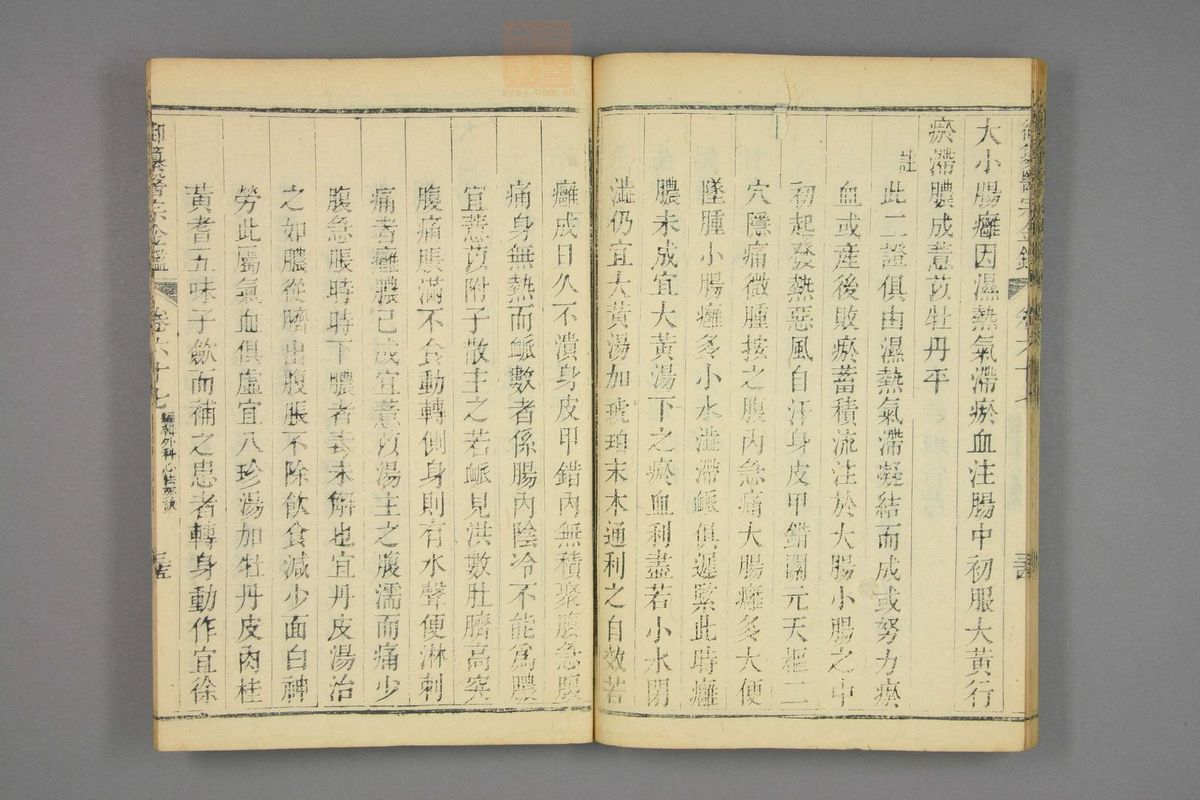 大小腸癰因濕熱氣滯瘀血注腸中初服大黃行
瘀滯膿成薏苡牡丹平
註
此二證俱由濕熱氣滯凝結而成或努力瘀
血或產後敗瘀蓄積流注於大腸小腸之中
初起發熱惡風自汗身皮甲錯關元天樞二
穴隱痛微腫按之腹內急痛大腸癰多大便
墜腫小腸癰多小水澁滯脈俱遲緊此時癰
膿未成宜大黃湯下之瘀血利盡若小水閉
澁仍宜大黃湯加琥珀末木通利之自效若
癰成日久不潰身皮甲錯內無積聚腹急腹
痛身無熱而脈數者係腸內陰冷不能為膿
宜薏苡附子散主之若脈見洪數肚臍高突
腹痛脹滿不食動轉側身則有水聲便淋刺
痛者癰膿已成宜薏苡湯主之腹濡而痛少
腹急脹時時下膿者毒未解也宜丹皮湯治
之如膿從臍出腹脹不除飲食減少面白神
勞此屬氣血俱虛宜八珍湯加牡丹皮肉桂
黃耆五味子歛而補之患者轉身動作宜徐
御纂醫宗金鑑 卷六十七 編輯外科心法要訣